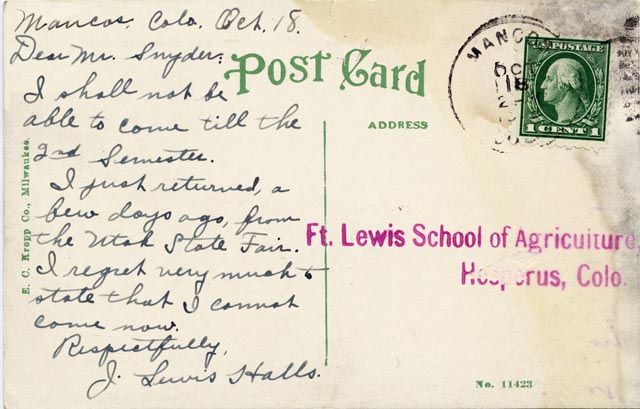 Mancos, Colo, Oct. 18.
Dear Mr. Snyder:
I shall not be
able to come till the
2nd Semester.
I just returned, a
few days ago, from
the Utah State Fair.
I regret very much to
state that I cannot
come now.
Respectfully,
J. Lewis Halls.
E. C. Kropp Co., Milwaukee.
POST CARD
ADDRESS
MANCO
OCT
18
U.S. POSTAGE
1 CENT 1
Ft. Lewis School of Agriculture
Hesperus, Colo.
No. 11423